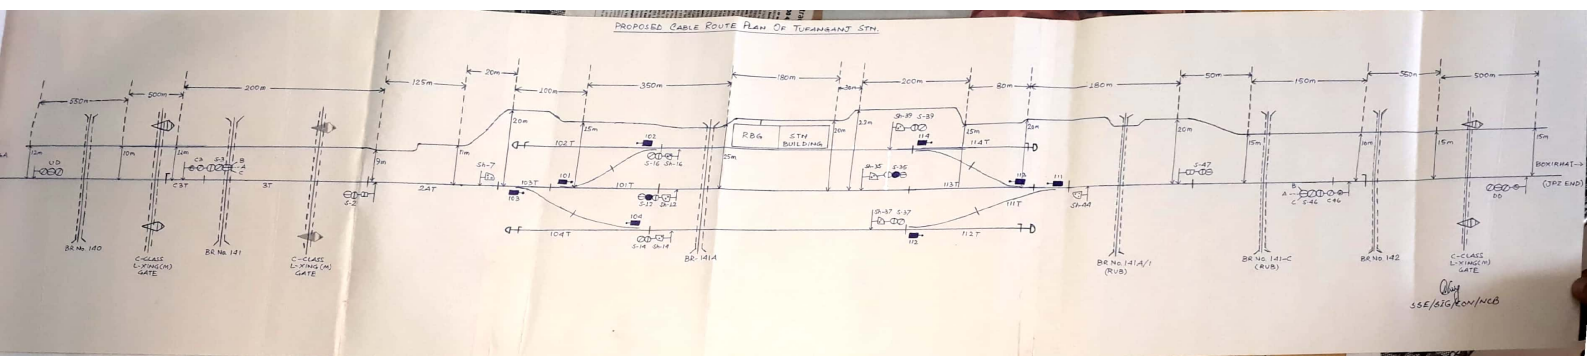 PROPOSED CABLE ROUTE PLAN OF TUFANGANJ STN.
550m
500m
200m
125m
20m
100m
350m
180m
30m
200m
80m
180m
50m
150m
550m
500m
12m
10m
10m
9m
11m
20m
15m
25m
20m
23m
25m
20m
20m
15m
10m
15m
15m
UD
C3
S-3
B
A
C
C3T
3T
S-2
2AT
Sh-7
102T
102
S-16 Sh-16
103T
101
101T
103
S-12 Sh-12
104
104T
S-14 Sh-14
RBG
STN BUILDING
Sh-39 S-39
114
114T
Sh-35 S-35
113T
113
111
111T
Sh-44
Sh-37 S-37
112
112T
S-47
B
A
C S-46 C46
DD
BOXIRHAT→
(JPZ END)
BR NO. 140
C-CLASS
L-XING(M)
GATE
BR NO. 141
C-CLASS
L-XING(M)
GATE
BR-141A
BR NO. 141A/1
(RUB)
BR NO. 141-C
(RUB)
BR NO. 142
C-CLASS
L-XING(M)
GATE
SSE/SIG/CON/NCB